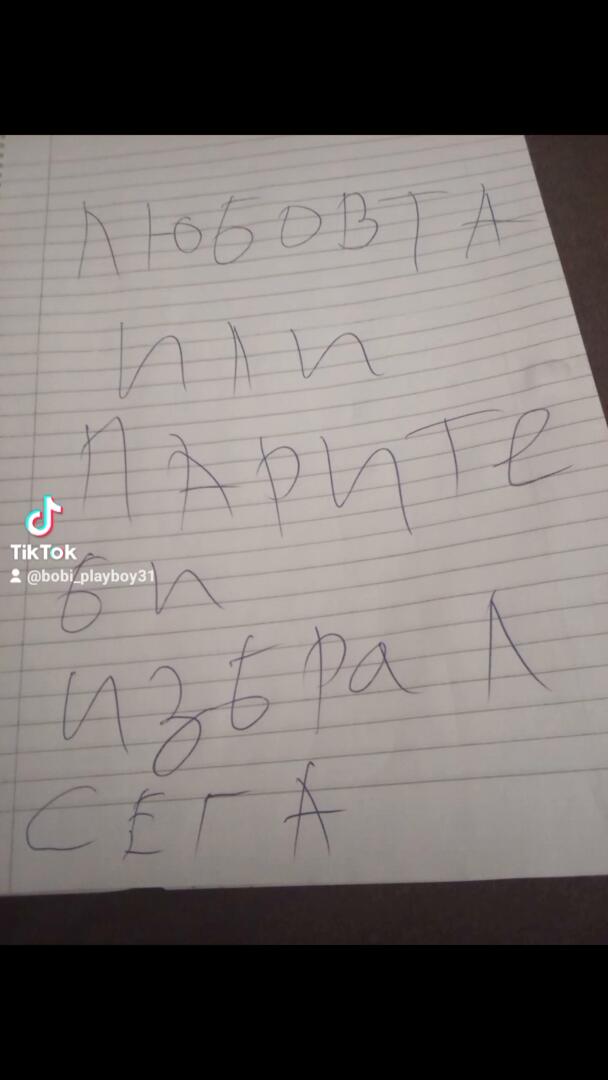 ЛЮБОВТА
ИЛИ
ПАРИТЕ
TikTok
@bobi_playboy31
БИ
ИЗБРАЛ
СЕГА